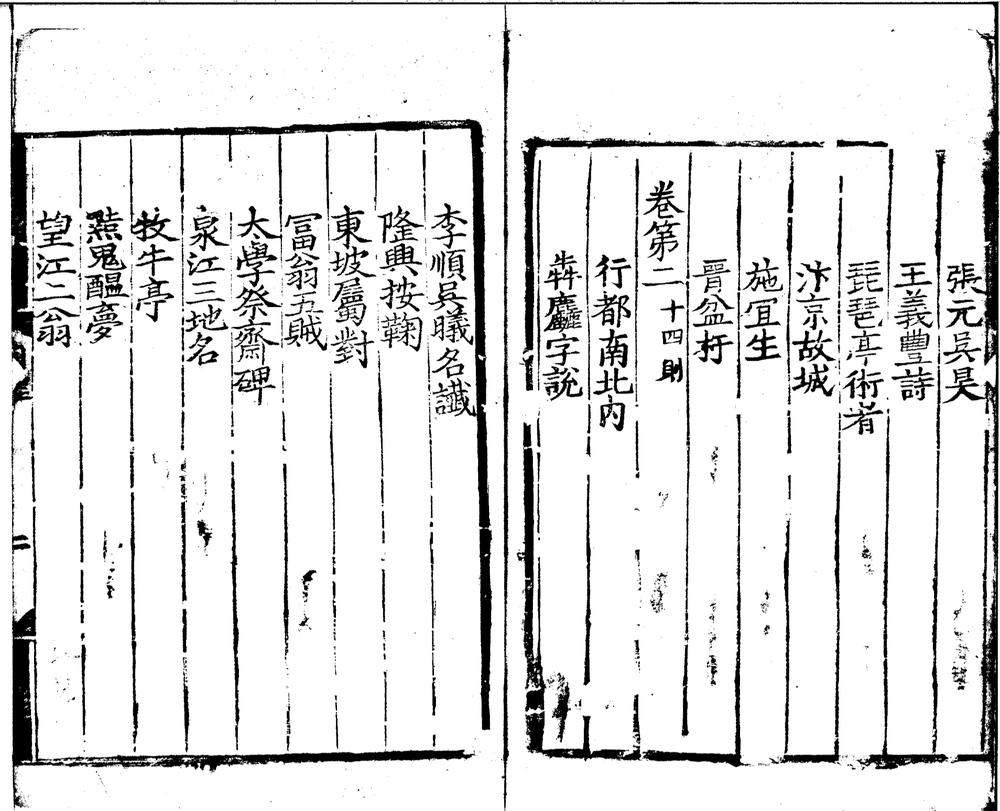 張元吳昊
王義豐詩
琵琶亭術者
汴京故城
施宜生
晉盆杅
卷第二 十四則
行都南北內
犇麤字說
李順吳曦名讖
隆興按鞠
東坡屬對
冨翁五賊
太學祭齋碑
泉江三地名
牧牛亭
黠鬼醞夢
望江二翁